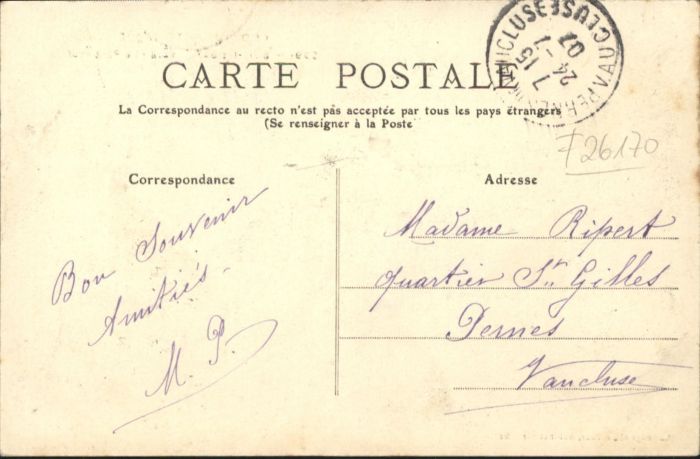 CARTE POSTALE
La Correspondance au recto n'est pas acceptée par tous les pays étrangers
(Se renseigner à la Poste
Correspondance
Adresse
Bon Souvenir
Amitiés
M. P.
Madame Ripert
quartier St Gilles
Pernes
Vaucluse
VAUCLUSE
7 15
24 - 7
07
F26170